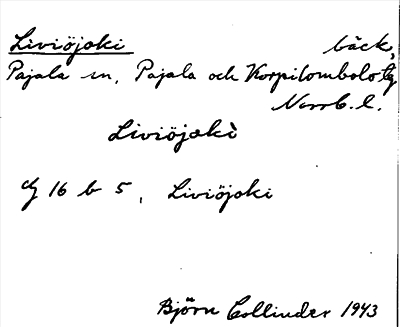 Liviöjoki bäck,
Pajala sn, Pajala och Korpilombolo tg
Norrb. l.
Liviöjoki̇̀
dg 16 b 5, Liviöjoki
Björn Collinder 1943